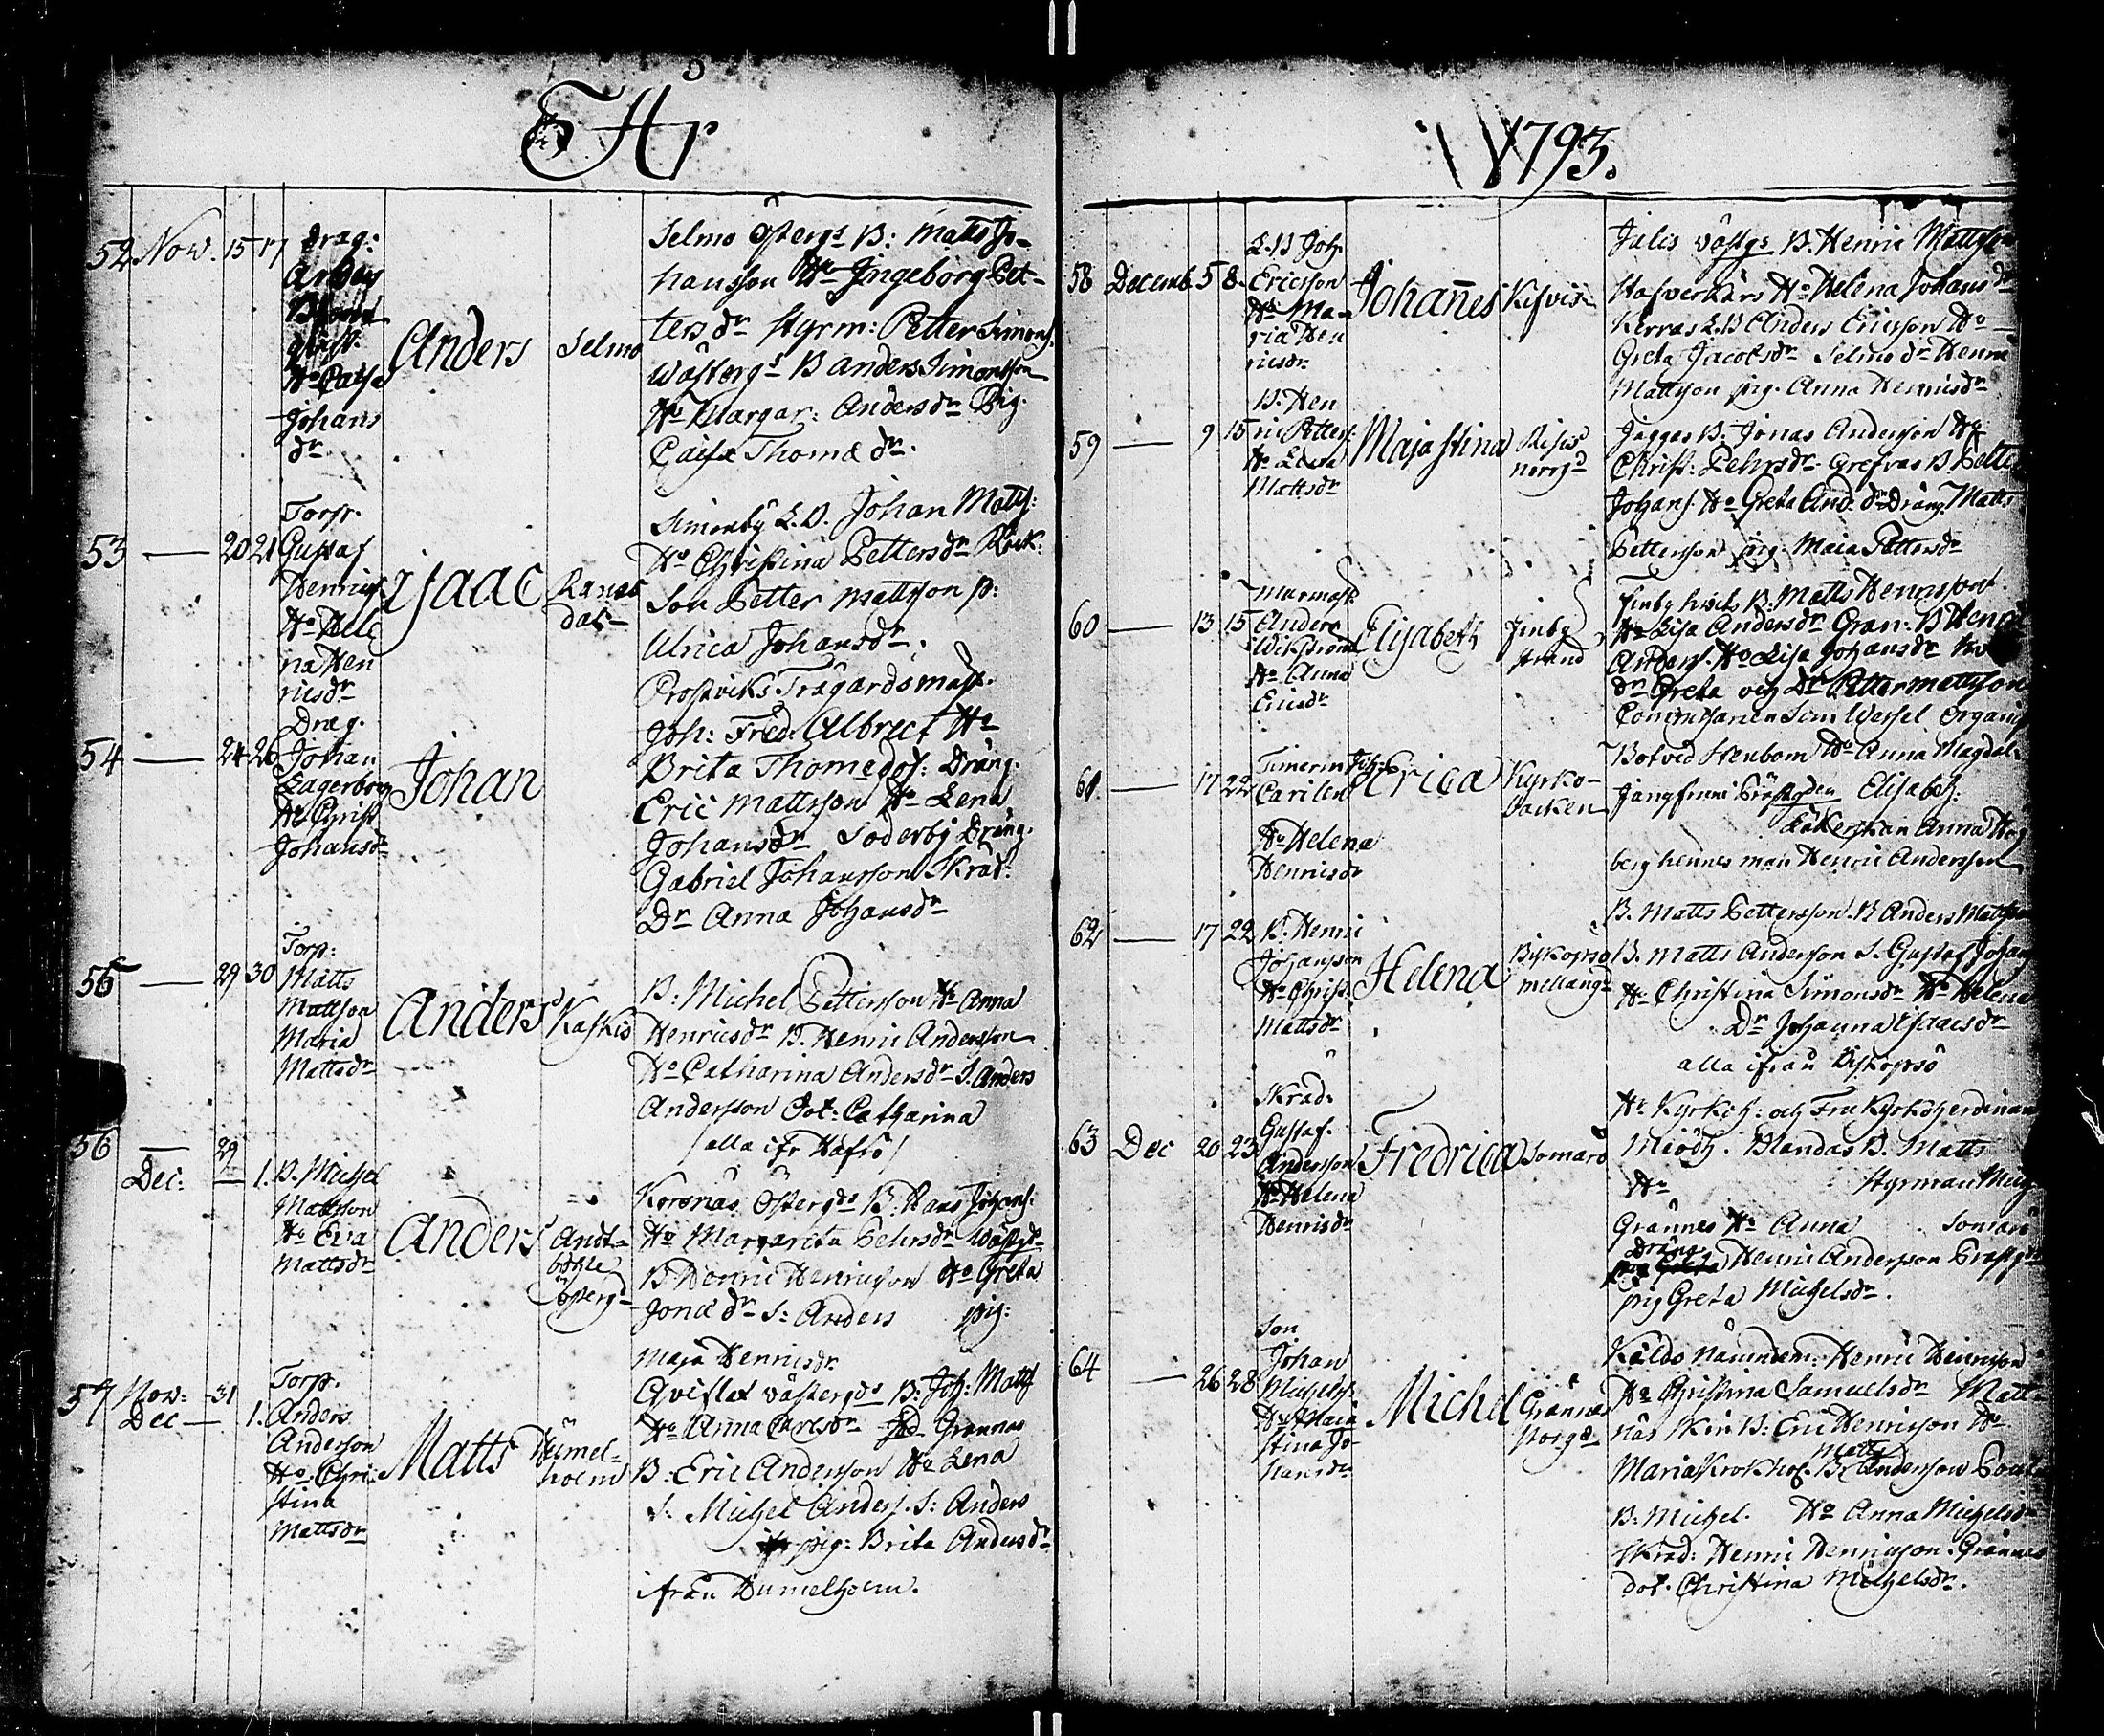 Åhr
52 Nov. 15 17
Drag:
Anders
qvist.
Ho Caisa
Johans
dr
Anders
Selmo
Selmo östergs B: Matts Jo-
hansson Ho Ingeborg Pet-
ters dr Styrm: Petter Simons.
Wästergs B Anders Simonsson
Ho Margar: Anders dr Pig.
Caisa Thomæ dr.
53 — 20 21
Torp.
Gustaf
Henrics.
Ho Hele
na Hen
ricsdr
Isaac
Ramsdal
Simonby L.B. Johan Matts:
Ho Christina Pettersdr Rusk:
Son Petter Mattsson p:
Ulrica Johansdr.
54 — 24 26
Drag.
Johan
Lagerborg
Ho Christ
Johansdr
Johan
Prostviks Trägårdsmäst.
Joh: Fred. Albrect Ho
Brita Thomedot: Dräng.
Eric Mattsson Ho Lena
Johansdr Söderby Dräng.
Gabriel Johansson Skräd:
Dr Anna Johansdr
55 — 29 30
Torp:
Matts
Mattson
Maria
Mattsdr
Anders
Kaskis
B: Michel Pettersson Ho Anna
Henricsdr B. Henric Andersson
Ho Catharina Andersdr S. Anders
Andersson Dot: Catharina
/alla ifr Hafsö/
56 — 29
Dec: — 1.
B. Michel
Mattson
Ho Eva
Mattsdr
Anders
Andt-
böhle
österg
Korsnäs Östergds B. Hans Johans:
Ho Margareta Pehrsdr Wästgs
B. Henric Henricsson Ho Greta
Jonæ dr S: Anders pig:
Maja Henricsdr
57 Nov: 31
Dec — 1.
Torp.
Anders
Anderson
Ho Chri-
stina
Mattsdr
Matts
Humel-
holm
Qvislax wästergds B. Joh: Matts
Ho Anna Carlsdr Grännäs
B. Eric Anderson Ho Lena
S. Michel Anders. S: Anders
pig: Brita Andersdr
ifrån Humelholm.
1793.
58 Decemb 5 8.
L.B Joh.
Ericsson
Ho Ma-
ria Hen
ricsdr.
Johannes
Kesvis
Jälis wästgs B. Henric Mattsson
Hafverkärs Ho Helena Johans dr
Kerras L.B Anders Ericsson Ho
Greta Jacobsdr Selmo dr Henric
Mattsson pig. Anna Henricsdr
59 — 9 15
B. Hen
ric Petters.
Ho Lena
Mattsdr
Maja Stina
norrgd
Jaggas B. Jonas Anderson Ho
Christ: Pehrsdr. B Petter
Johans. Ho Greta And. dr Dräng. Matts
Pettersson pig. Maia Pettersdr
60 — 13 15
Murmäst.
Anders
Wikström
Ho Anna
Ericsdr
Elisabeth
Finby
strand
Finby B: Matts Henricsson
Ho Lisa Andersdr Grän: B Henric
Anders. Ho Lisa Johansdr
dr Greta och Dr Petter Mattsson
61 — 17 22
Timerm
Carlen
Ho Helena
Henricsdr
Erica
Kyrko-
backen
Commissarien Sim. Wessel Organis
Botvid Stenbom Ho Anna Magdal:
Jungfruni Prästgden Elisabeth:
Anna Hag
berg hennes man Henric Andersson
62 — 17 22
B. Henric
Johansson
Ho Christ.
Mattsdr
Helena
Biskopsö
mellang
B. Matts Pettersson. B Anders Mattsson
B. Matts Andersson S. Gustaf Johans
Ho Christina Simonsdr Ho Helena
Dr Johanna Isaacsdr
alla ifrån Biskopsö
63 Dec 20 23
Skräd:
Gustaf.
Andersson
Ho Helena
Henricsdr
Fredrica
Somarö
Hr Kyrkoh: och Fru Kyrkoherdinan
Miödh. Blandas B. Matts
Ho Styrman Mich
Grännes Ho Anna Somarö
Dräng. Henric Andersson Prästgd
pig Greta Michelsdr.
64 — 26 28
Son
Johan
Michels.
Ho Maja
Stina Jo-
hansdr
Michel
Grännäs
Norrgd
Käldö Nämndem: Henric Henricsson
Ho Christina Samuelsdr Matt-
näs B: Eric Henricsson Ho
Maria Krokholm B. Matts Anderson
B. Michel. Ho Anna Michelsdr
Skräd: Henric Henricsson. Grännes
dot. Christina Michelsdr.